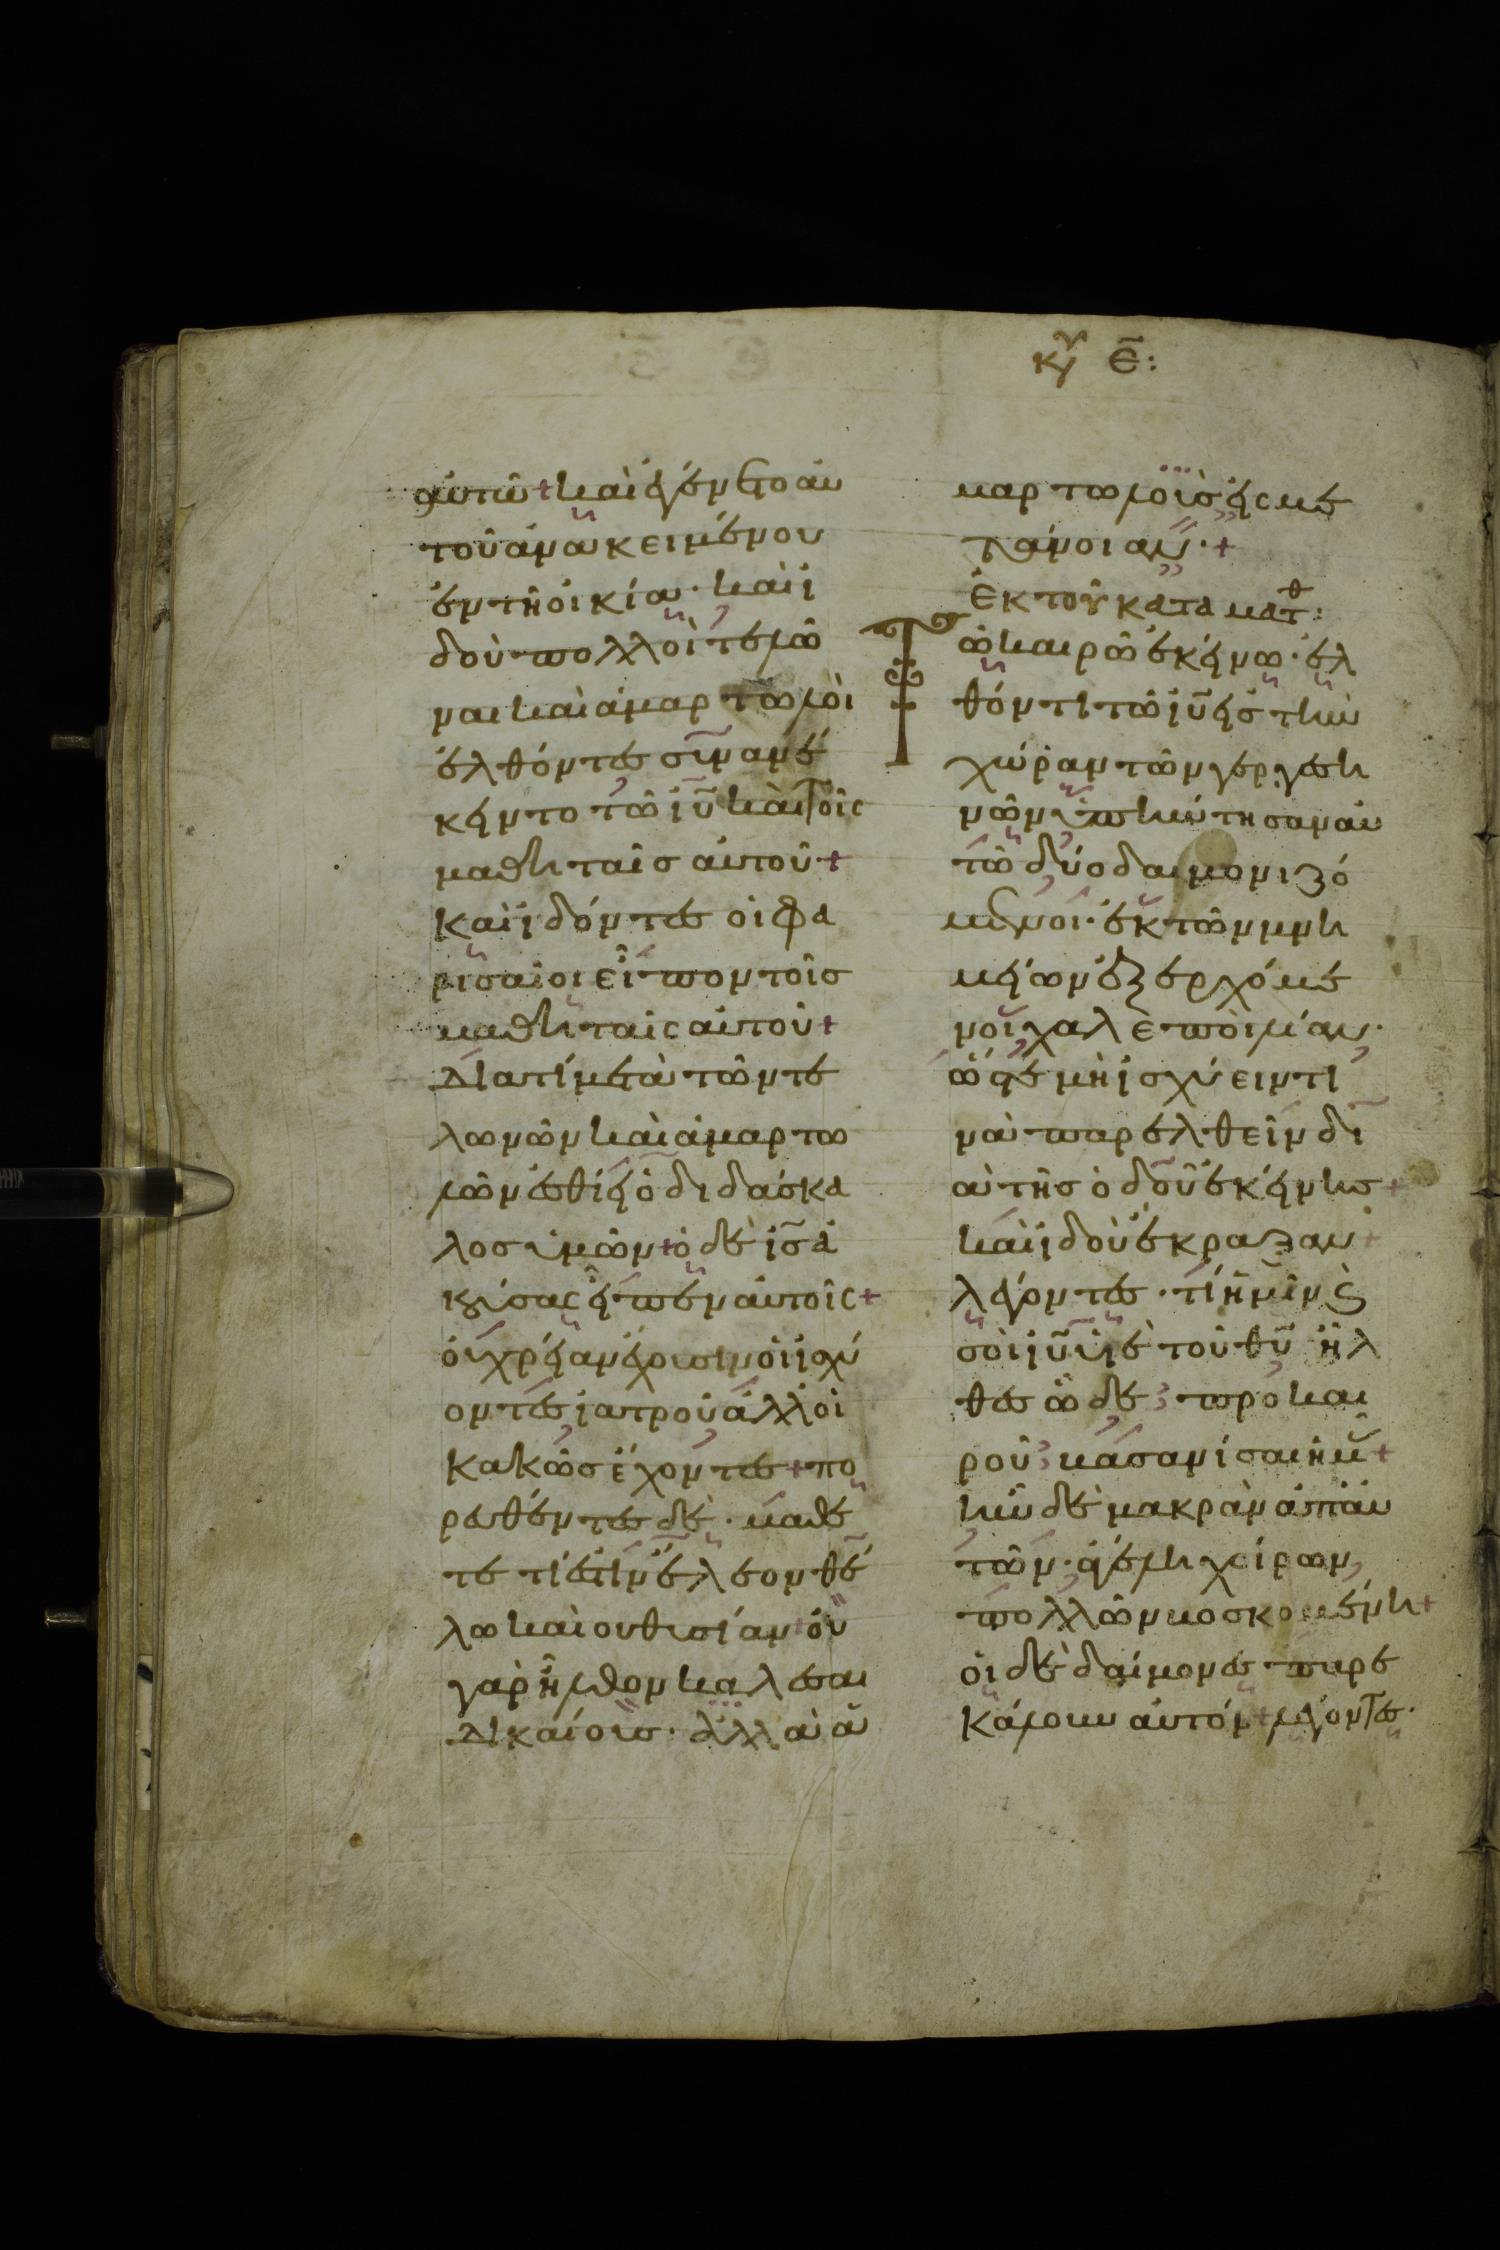 κυ ε̄:
αὐτῶ + καὶ ἐγένετο αὐ
τοῦ ἀνακειμένου
ἐν τῆ οἰκία · καὶ ἰ
δοὺ πολλοὶ τελῶ
ναι καὶ ἁμαρτωλοὶ
ἐλθόντες συνανέ
κειντο τῶ ἰῦ καὶ τοῖς
μαθηταῖσ αὐτοῦ +
Καὶ ἰδόντες οἱ φα
ρισαῖοι εἶπον τοῖσ
μαθηταῖς αὐτοῦ +
Διατί μετὰ τῶν τε
λωνῶν καὶ ἁμαρτω
λῶν ἐσθίει ὁ διδάσκα
λοσ ὑμῶν + ὁ δὲ ἰσ̄ ἀ
κούσας εἶπεν αὐτοῖς +
οὐ χρείαν ἔχουσιν οἱ ἰσχύ
οντες ἰατροῦ ἀλλ οἱ
κακῶσ ἔχοντες + πο
ρευθέντες δὲ · μάθε
τε τί ἐστιν ἔλεον θέ
λω καὶ ου θυσίαν + οὐ
γὰρ ἦλθον καλέσαι
Δικαίους · ἀλλὰ ἁ
μαρτωλοὺσ εἰς με
τάνοιαν · +
Ἐκ τοῦ κατα ματθ:
Τῶ καιρῶ ἐκείνω · ἐλ
θόντι τῶ ἰῦ εἰσ τὴν
χώραν τῶν γεργεση
νῶν ὑπήντησαν αὐ
τῶ δύο δαιμονιζό
μενοι · ἐκ τῶν μνη
μείων ἐξερχόμε
νοι χαλεποὶ λίαν ·
ὥστε μὴ ἰσχύειν τι
νὰ παρελθεῖν δι
ὰ τῆσ ὁδοῦ ἐκείνησ +
καὶ ἰδοὺ ἔκραξαν +
λέγοντες · τί ἡμῖν ϗ
σοὶ ἰῦ ὑιὲ τοῦ θῦ ἦλ
θεσ ὧδε πρὸ και
ροῦ βασανίσαι ἡμᾶ +
ἦν δὲ μακρὰν ἀπ αὐ
τῶν · ἀγέλη χοίρων
πολλῶν βοσκομένη +
οἱ δὲ δαίμονεσ παρε
κάλουν αὐτὸν + λέγοντεσ ·